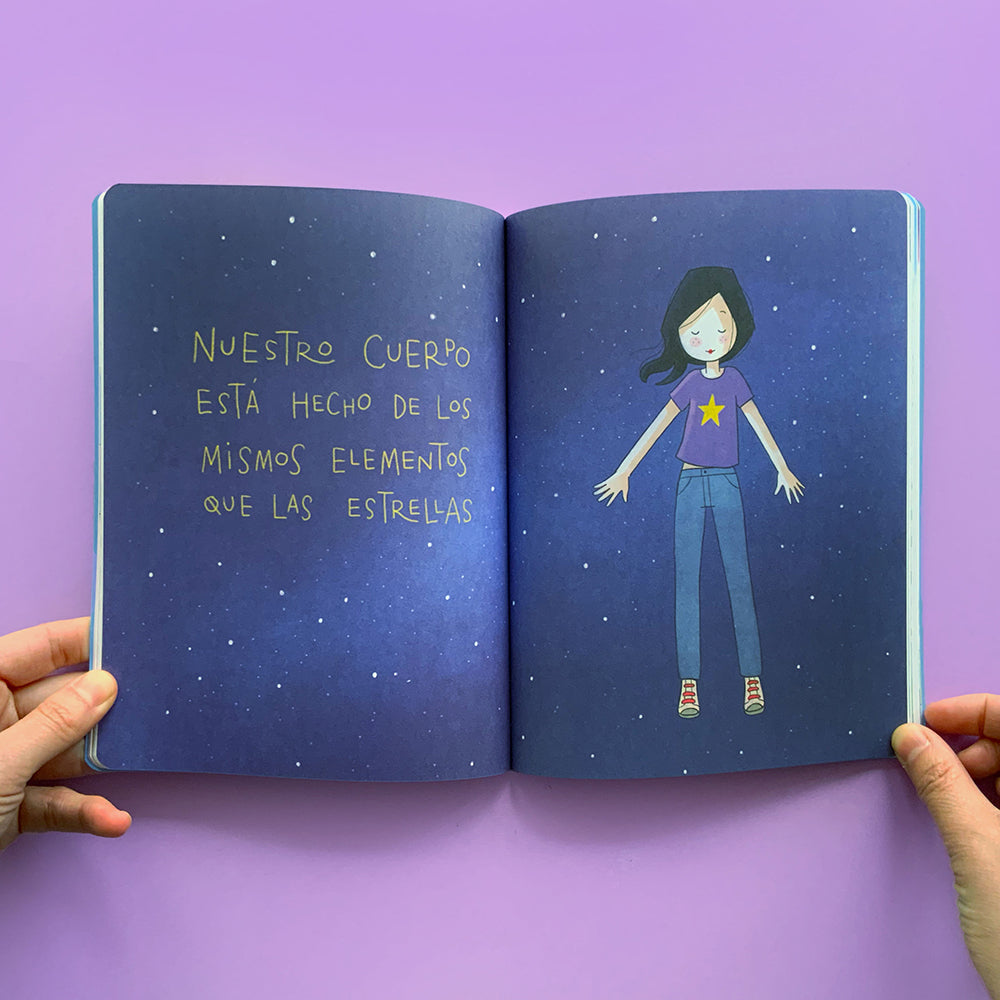 NUESTRO CUERPO
ESTÁ HECHO DE LOS
MISMOS ELEMENTOS
QUE LAS ESTRELLAS